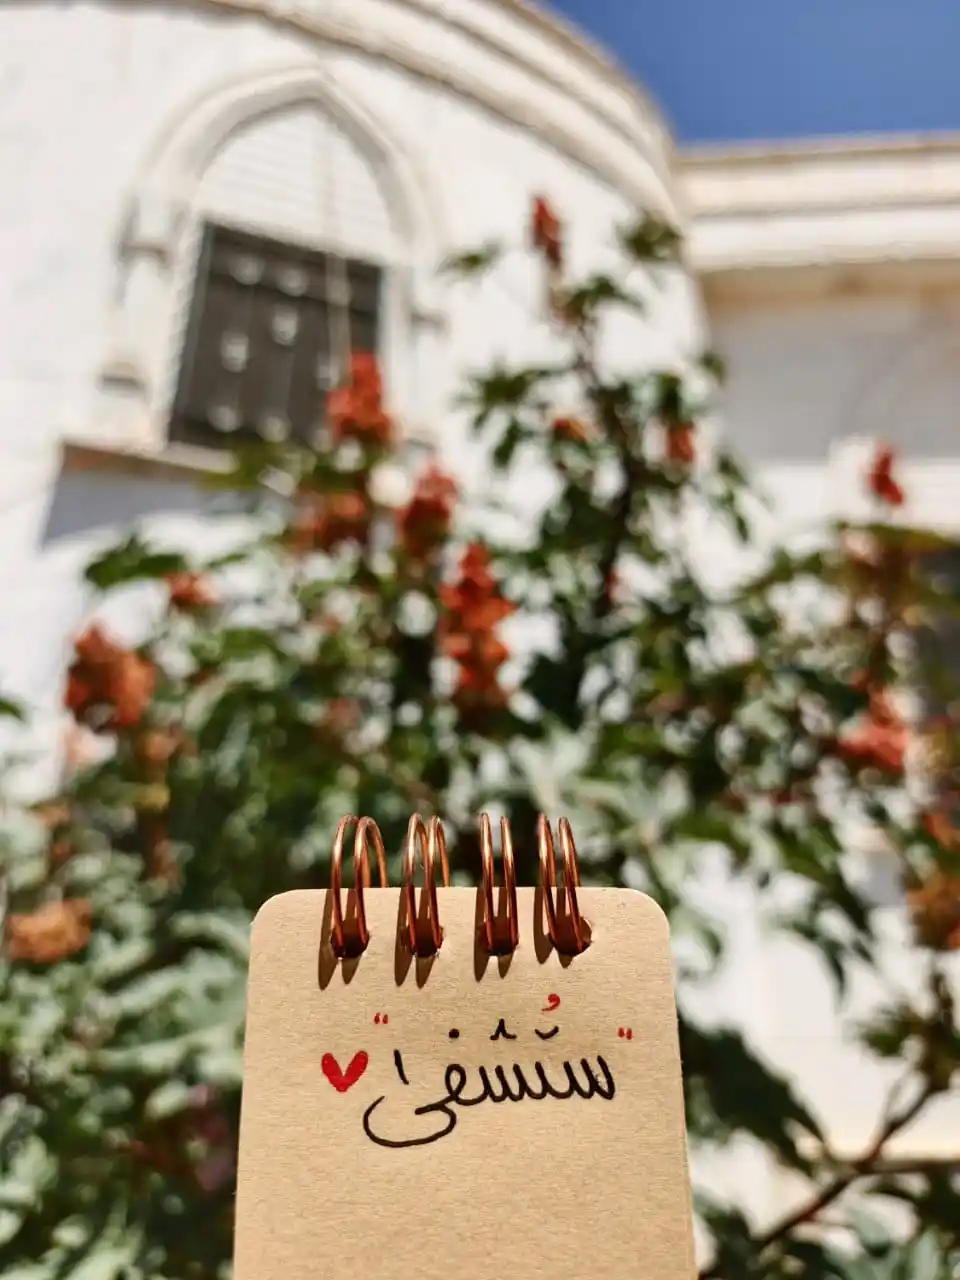 "سَتُشفىٰ"